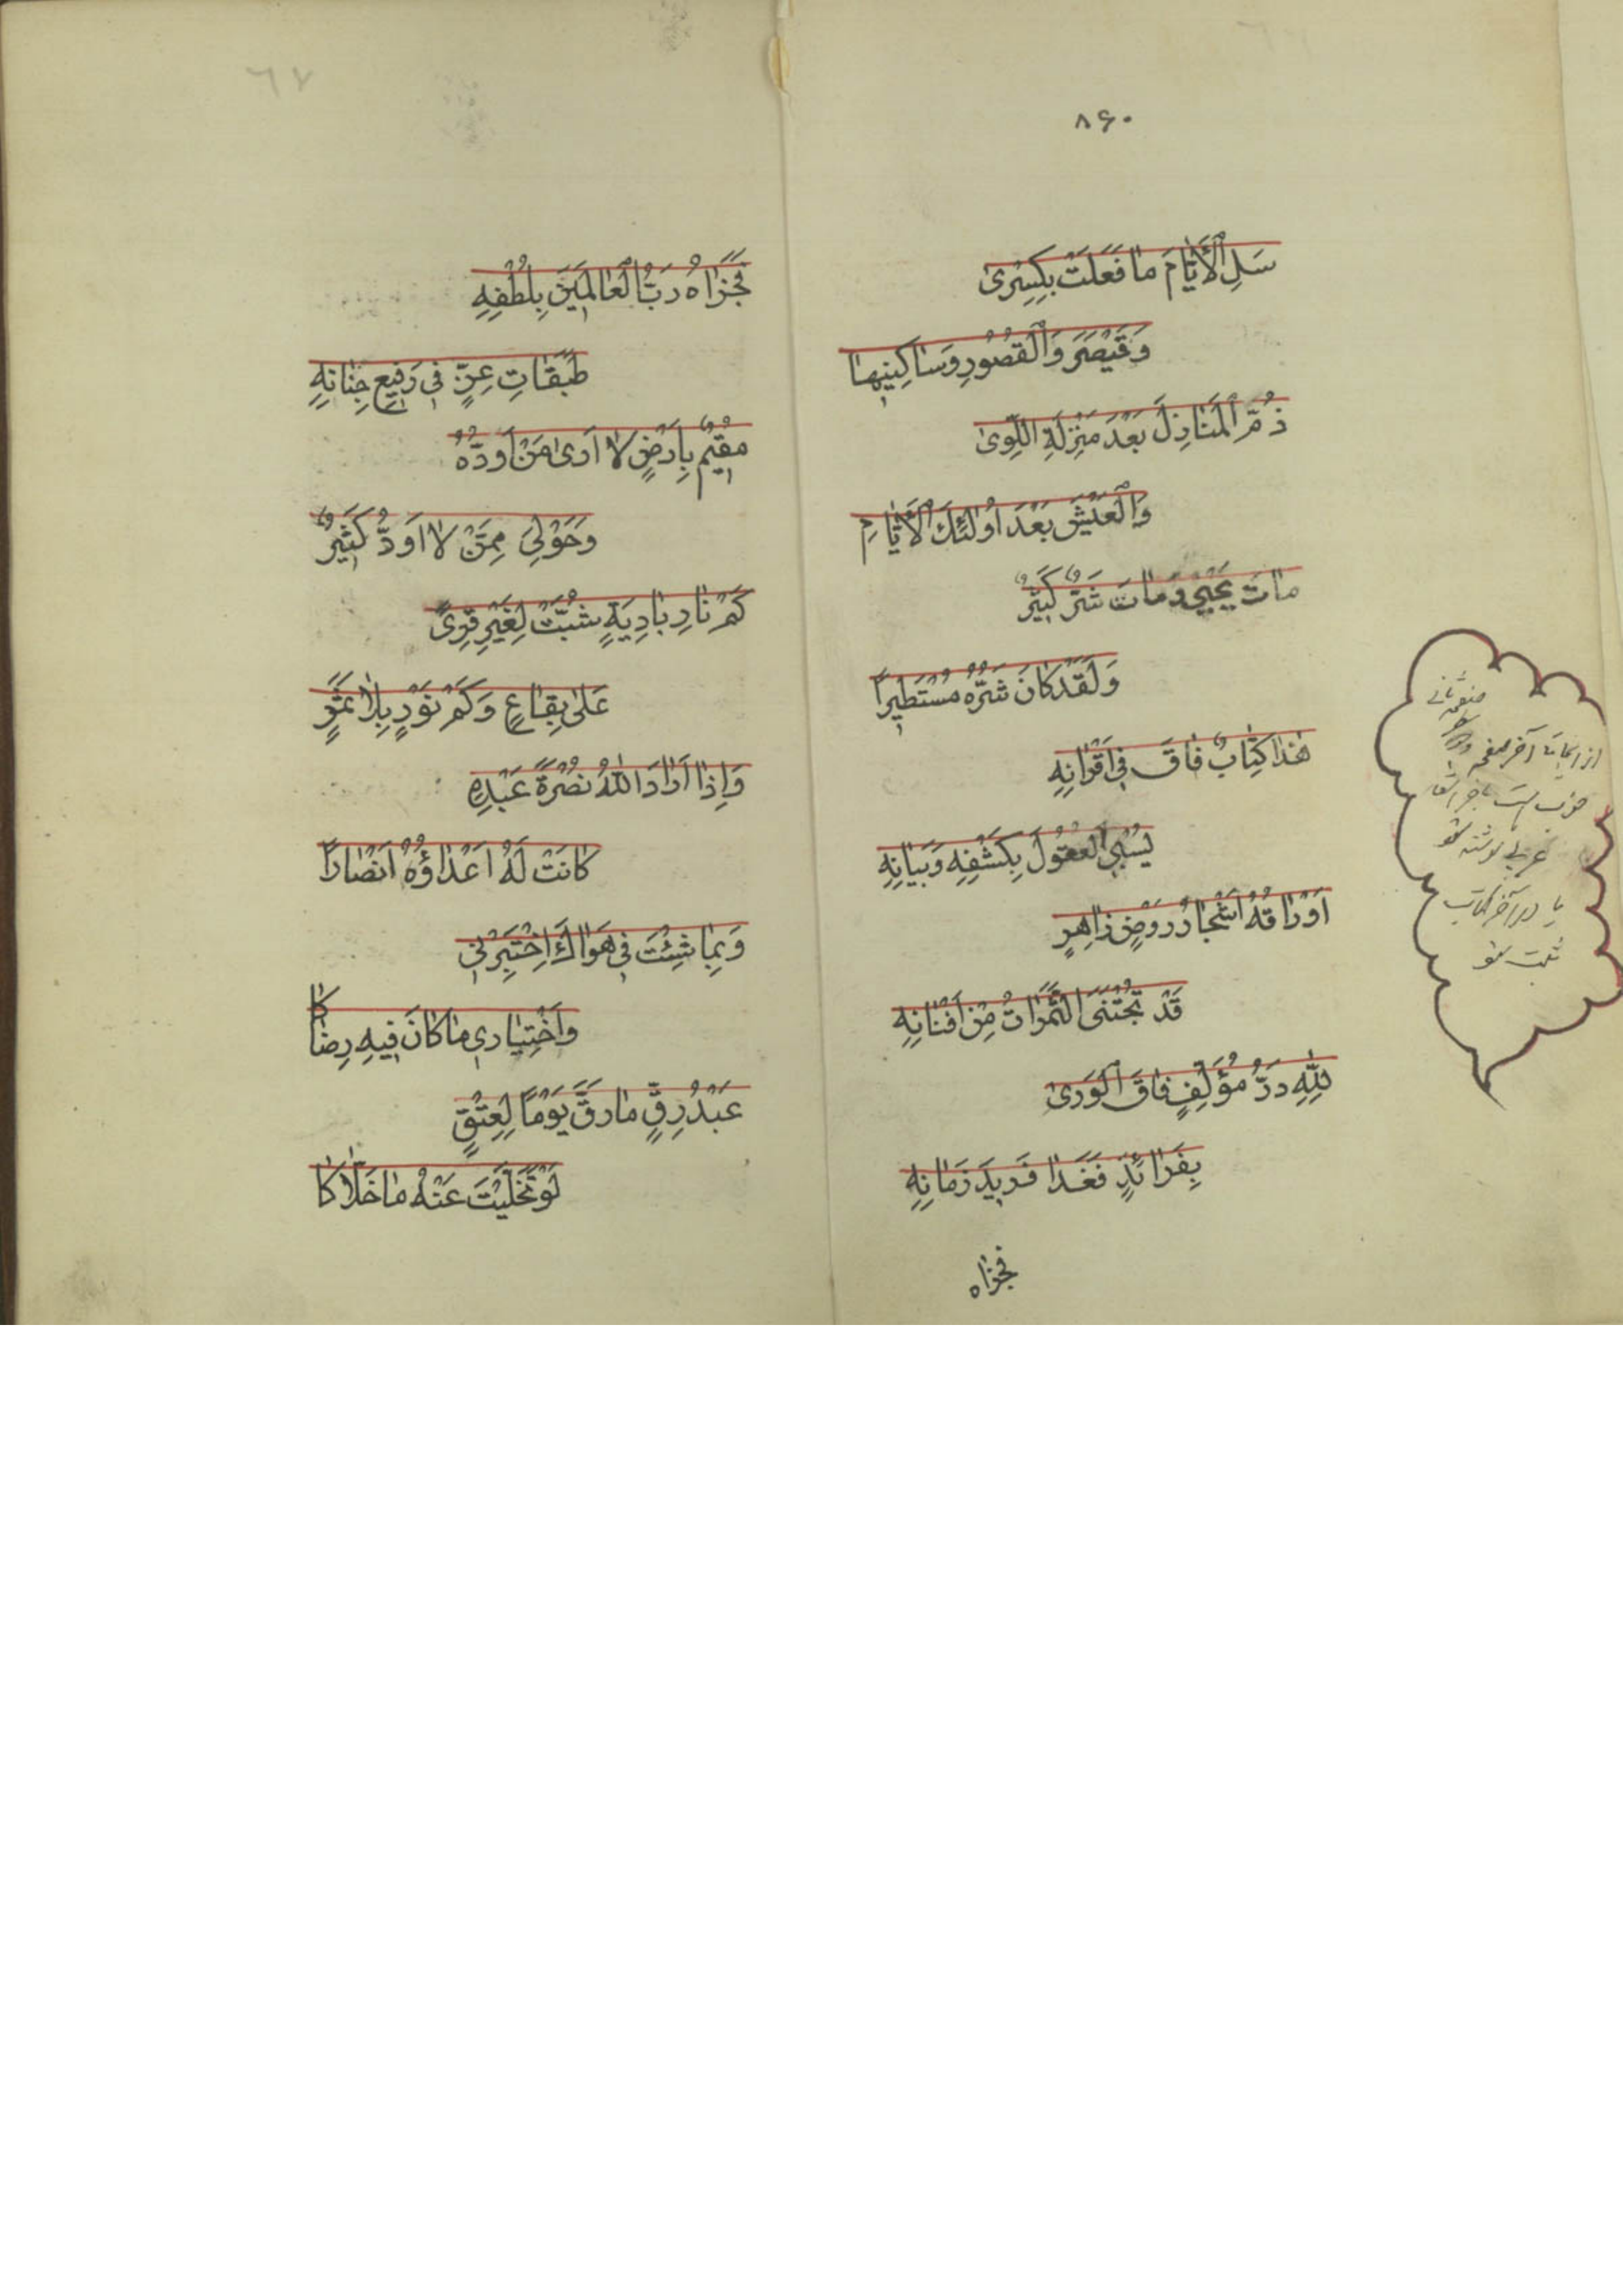 ۸۶۰
سَلِ الْأَيّٰامَ مٰا فَعَلَتْ بِكِسْرىٰ
وَقَيْصَرَ وَالْقُصُورِ وَسٰاكِنِيهٰا
ذُمَّ الْمَنٰازِلَ بَعْدَ مَنْزِلَةِ اللِّوىٰ
وَالْعَيْشَ بَعْدَ اُولٰئِكَ الْأَيّٰامِ
مٰاتَ يَحْيىٰ وَمٰاتَ شَرٌّ كَبِيرٌ
وَلَقَدْ كٰانَ شَرُّهُ مُسْتَطِيراً
هٰذٰا كِتٰابٌ فٰاقَ فِي اَقْرٰانِهِ
يَسْبِي الْعُقُولَ بِكَشْفِهِ وَبَيٰانِهِ
اَوْرٰاقُهُ اَشْجٰارُ رَوْضٍ زٰاهِرٍ
قَدْ تُجْتَنَى الثَّمَرٰاتُ مِنْ اَفْنٰانِهِ
لِلّٰهِ دَرُّ مُؤَلِّفٍ فٰاقَ الْوَرىٰ
بِفَرٰائِدٍ فَغَدٰا فَرِيدَ زَمٰانِهِ
فجزاه
از اینجا تا آخر صفحه
خوب است باخر اشعار
عربی نوشته شو
یا در آخر کتاب
ثبت شو
٦٧
فَجَزٰاهُ رَبُّ الْعٰالَمِينَ بِلُطْفِهِ
طَبَقٰاتِ عِزٍّ فِي رَفِيعِ جِنٰانِهِ
مُقِيمٌ بِاَرْضٍ لاٰ اَرىٰ مَنْ اَوَدُّهُ
وَحَوْلِيَ مِمَّنْ لاٰ اَوَدُّ كَثِيرٌ
كَمْ نٰارِ بٰادِيَةٍ شُبَّتْ لِغَيْرِ قِرىً
عَلىٰ بِقٰاعٍ وَكَمْ نَوْرٍ بِلاٰ ثَمَرٍ
وَاِذٰا اَرٰادَ اللّٰهُ نُصْرَةَ عَبْدِهِ
كٰانَتْ لَهُ اَعْدٰاؤُهُ اَنْصٰارًا
وَبِمٰا شِئْتَ فِي هَوٰاكَ اخْتَبِرْنِي
وَاخْتِيٰارِي مٰا كٰانَ فِيهِ رِضٰاكٰا
عَبْدُ رِقٍّ مٰا رَقَّ يَوْمًا لِعِتْقٍ
لَوْ تَخَلَّيْتَ عَنْهُ مٰا خَلّاٰكٰا